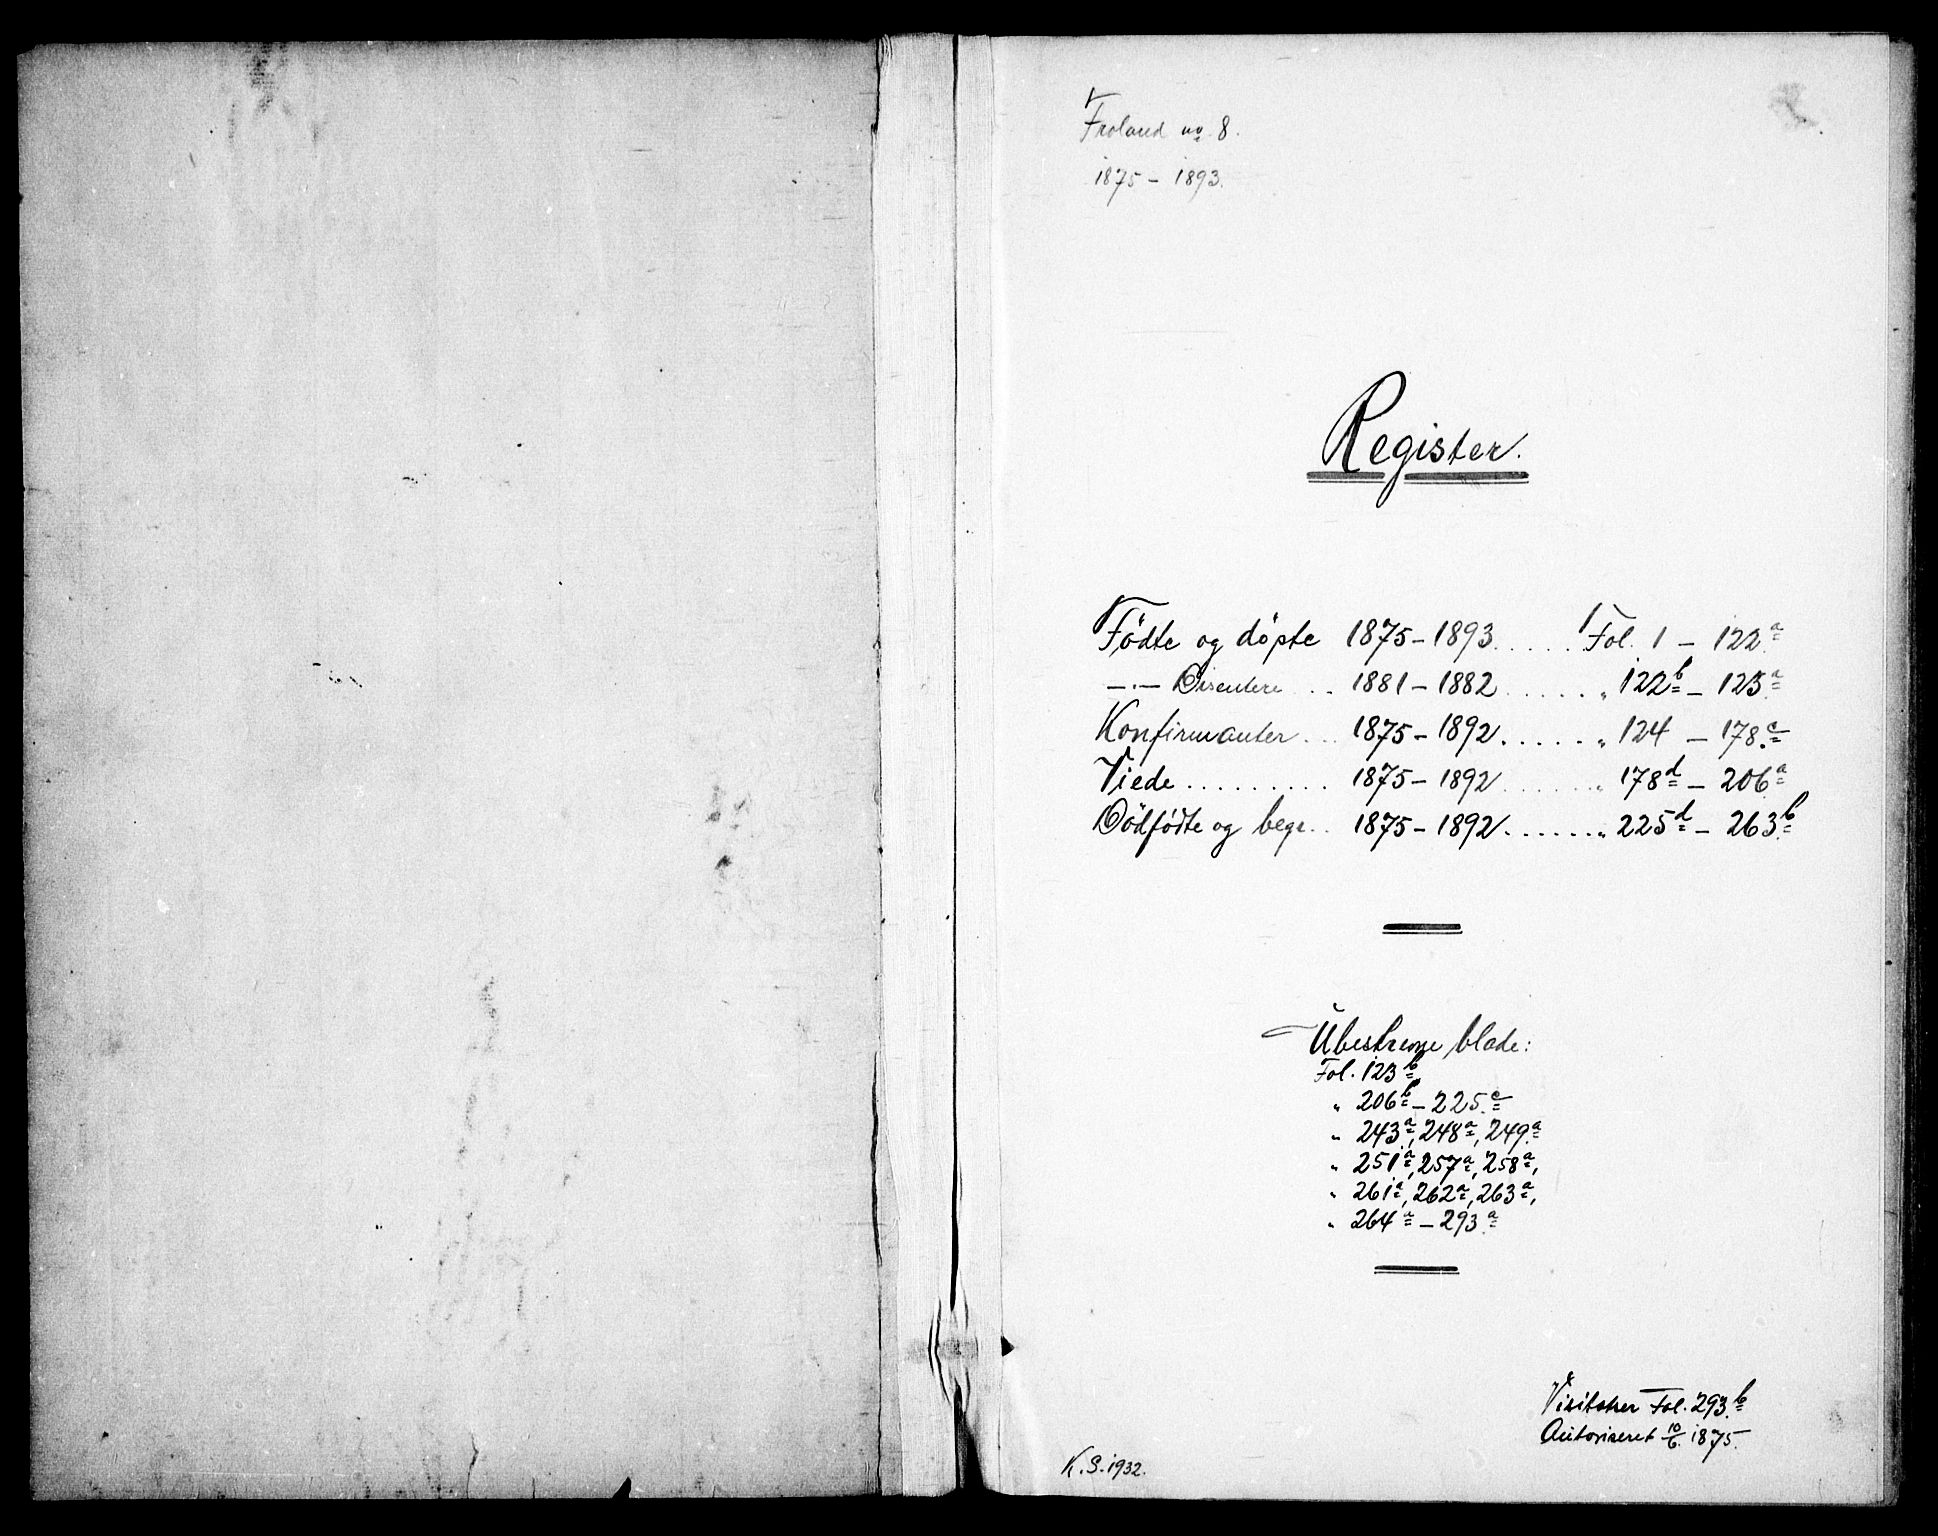 Froland no 8.
1875 – 1893.
Register.
Fødte og døpte 1875 – 1893 ..... Fol. 1 – 122a
—·— Disentere ... 1881 – 1882 ...... „ 122b – 123a
Konfirmanter ... 1875 – 1892 ...... „ 124 – 178c
Viede ......... 1875 – 1892 ...... „ 178d – 206a
Dödfödte og begr. .. 1875 – 1892 ...... „ 225d – 263b
Ubeskrevne blade:
Fol. 123b
„ 206b – 225c
„ 243a, 248a, 249a
„ 251a, 257a, 258a,
„ 261a, 262a, 263a,
„ 264a – 293a
Visitatser Fol. 293b
Autoriseret 10/6. 1875.
K. S. 1932.